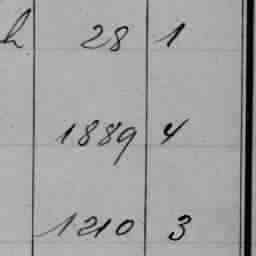 h 28 1
1889 4
1210 3